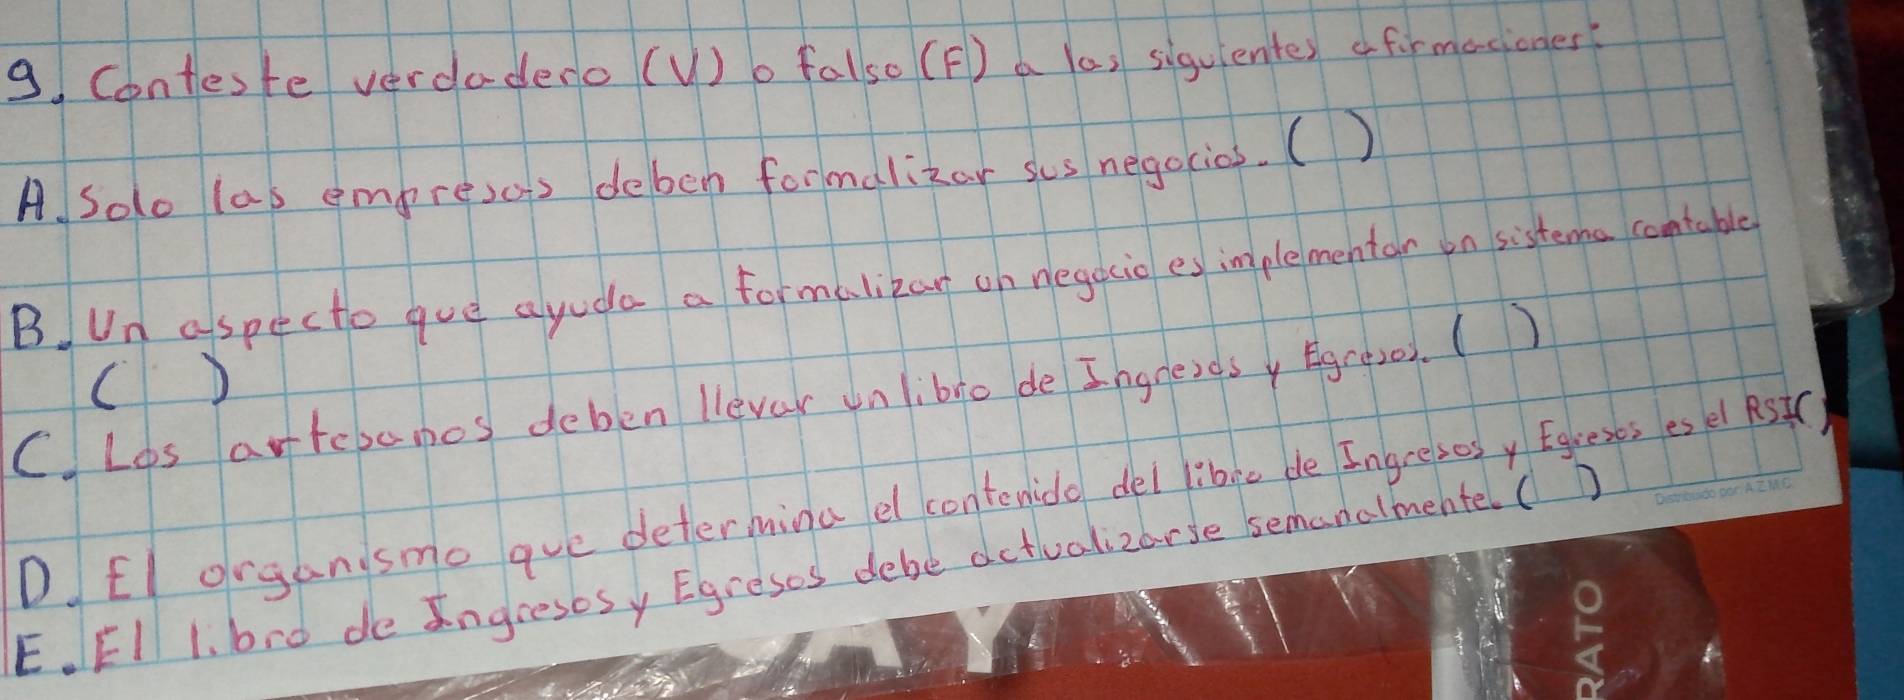 9. Conteste verdadero (V) o falso (F) a las siguientes afirmaciones:
A. Solo las empresas deben formalizar sus negocios. ( )
B. Un aspecto que ayuda a formalizar un negocio es implementar un sistema contable
( )
C. Los artesanos deben llevar un libro de Ingresos y Egresos. ( )
D. El organismo que determina el contenido del libro de Ingresos y Egresos es el RSI( )
E. El libro de Ingresos y Egresos debe actualizarse semanalmente. ( )
Distribuido por: AZMC
RATO